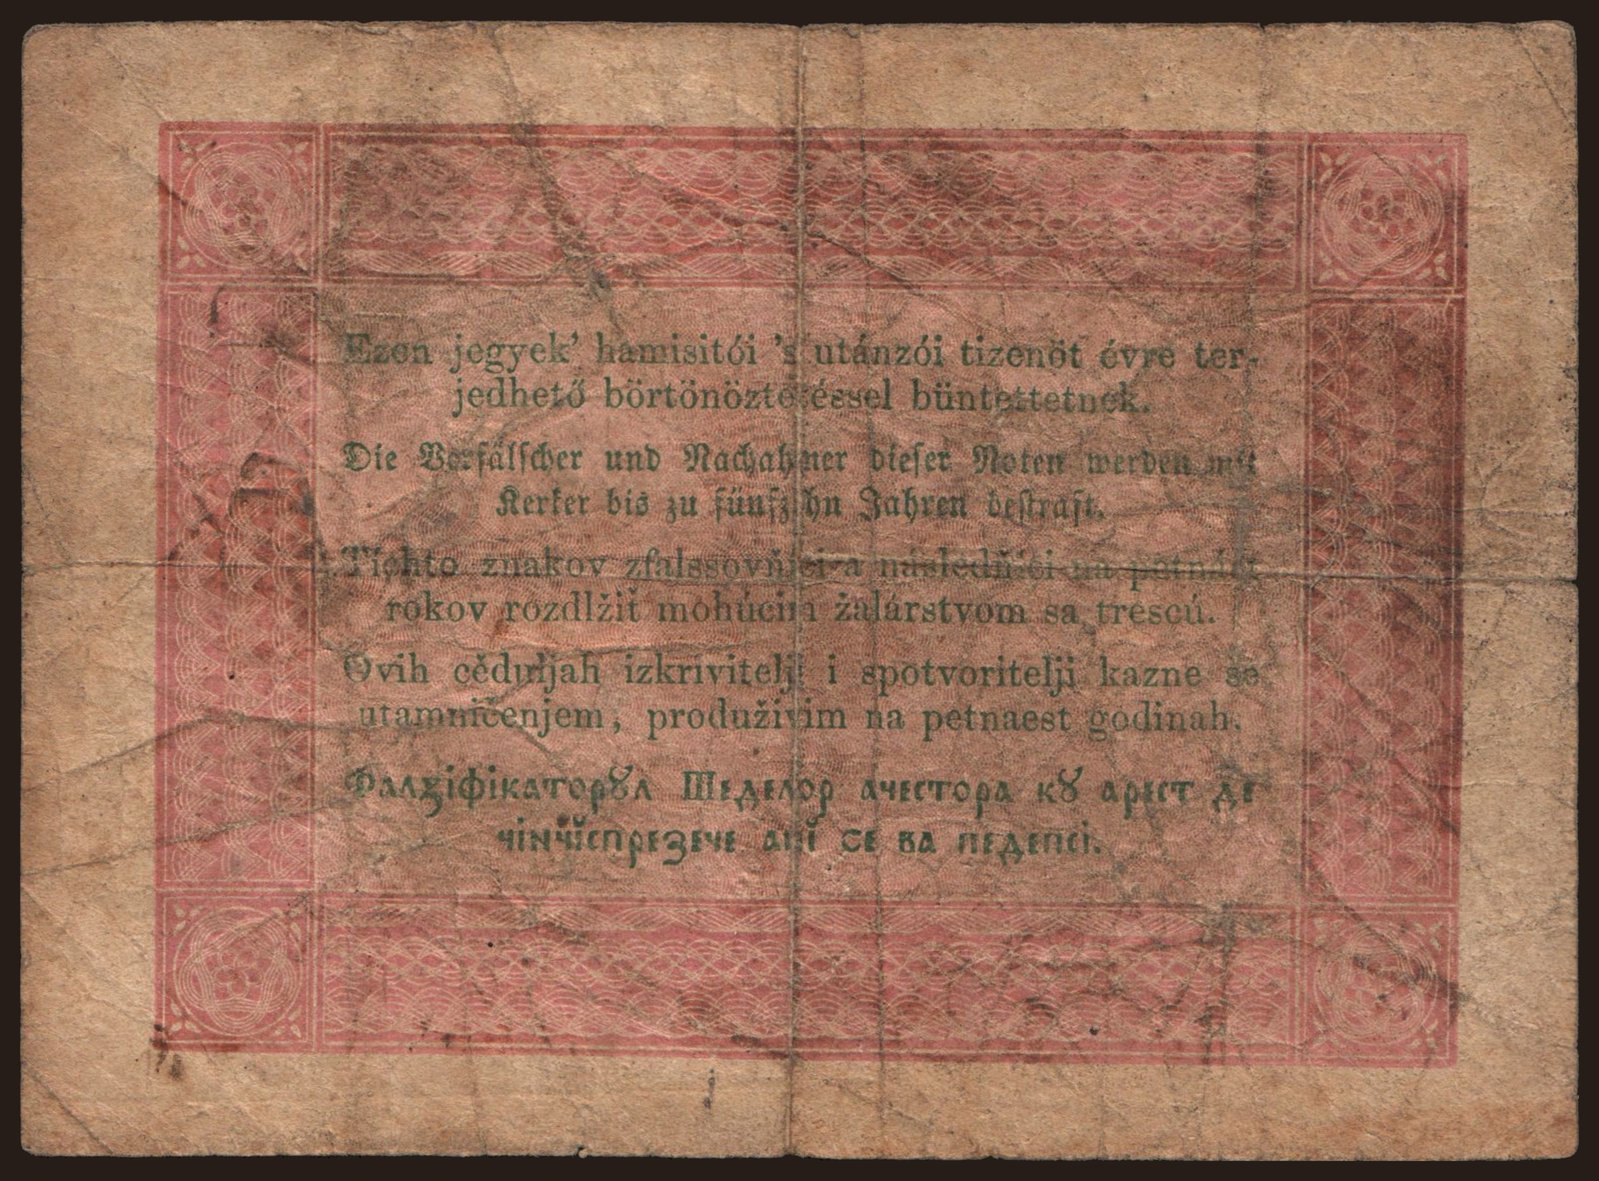 Ezen jegyek' hamisitói 's utánzói tizenöt évre ter-
jedhető börtönöztetéssel büntettetnek.
Die Verfälscher und Nachahmer dieser Noten werden mit
Kerker bis zu fünfzehn Jahren bestraft.
Tichto znakov zfalssovňíci a následňíci na petnásť
rokov rozdlžiť mohúcim žalárstvom sa trescú.
Ovih cěduljah izkrivitelji i spotvoritelji kazne se
utamničenjem, produživim na petnaest godinah.
Фалзіфікаторꙋл Шеделор ачестора кꙋ арест де
чінчĭспрезече анĭ се ва педепсі.